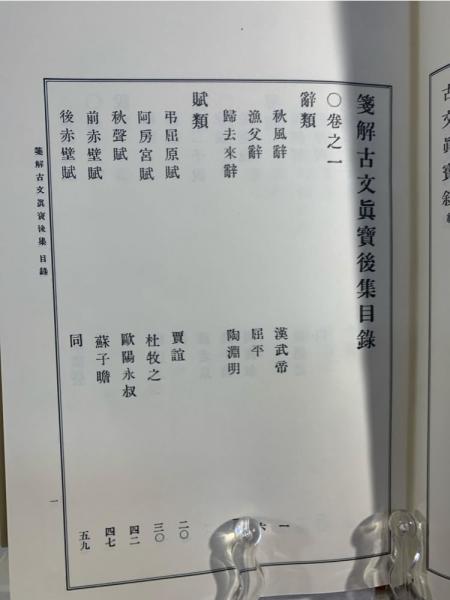 箋解古文眞寶後集目錄
○卷之一
辭類
秋風辭 漢武帝 一
漁父辭 屈平 六
歸去來辭 陶淵明
賦類
弔屈原賦 賈誼 二〇
阿房宮賦 杜牧之 三〇
秋聲賦 歐陽永叔 四二
前赤壁賦 蘇子瞻 四七
後赤壁賦 同 五九
箋解古文眞寶後集 目錄
一
古文眞寶